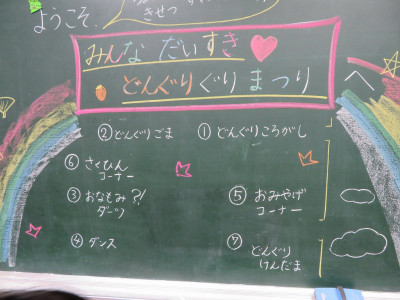 ようこそ、
きせつ
みんな だいすき
どんぐりぐりまつり
へ
① どんぐりころがし
② どんぐりごま
⑥ さくひん
コーナー
③ おなもみ?!
ダーツ
⑤ おみやげ
コーナー
④ ダンス
⑦ どんぐり
けんだま